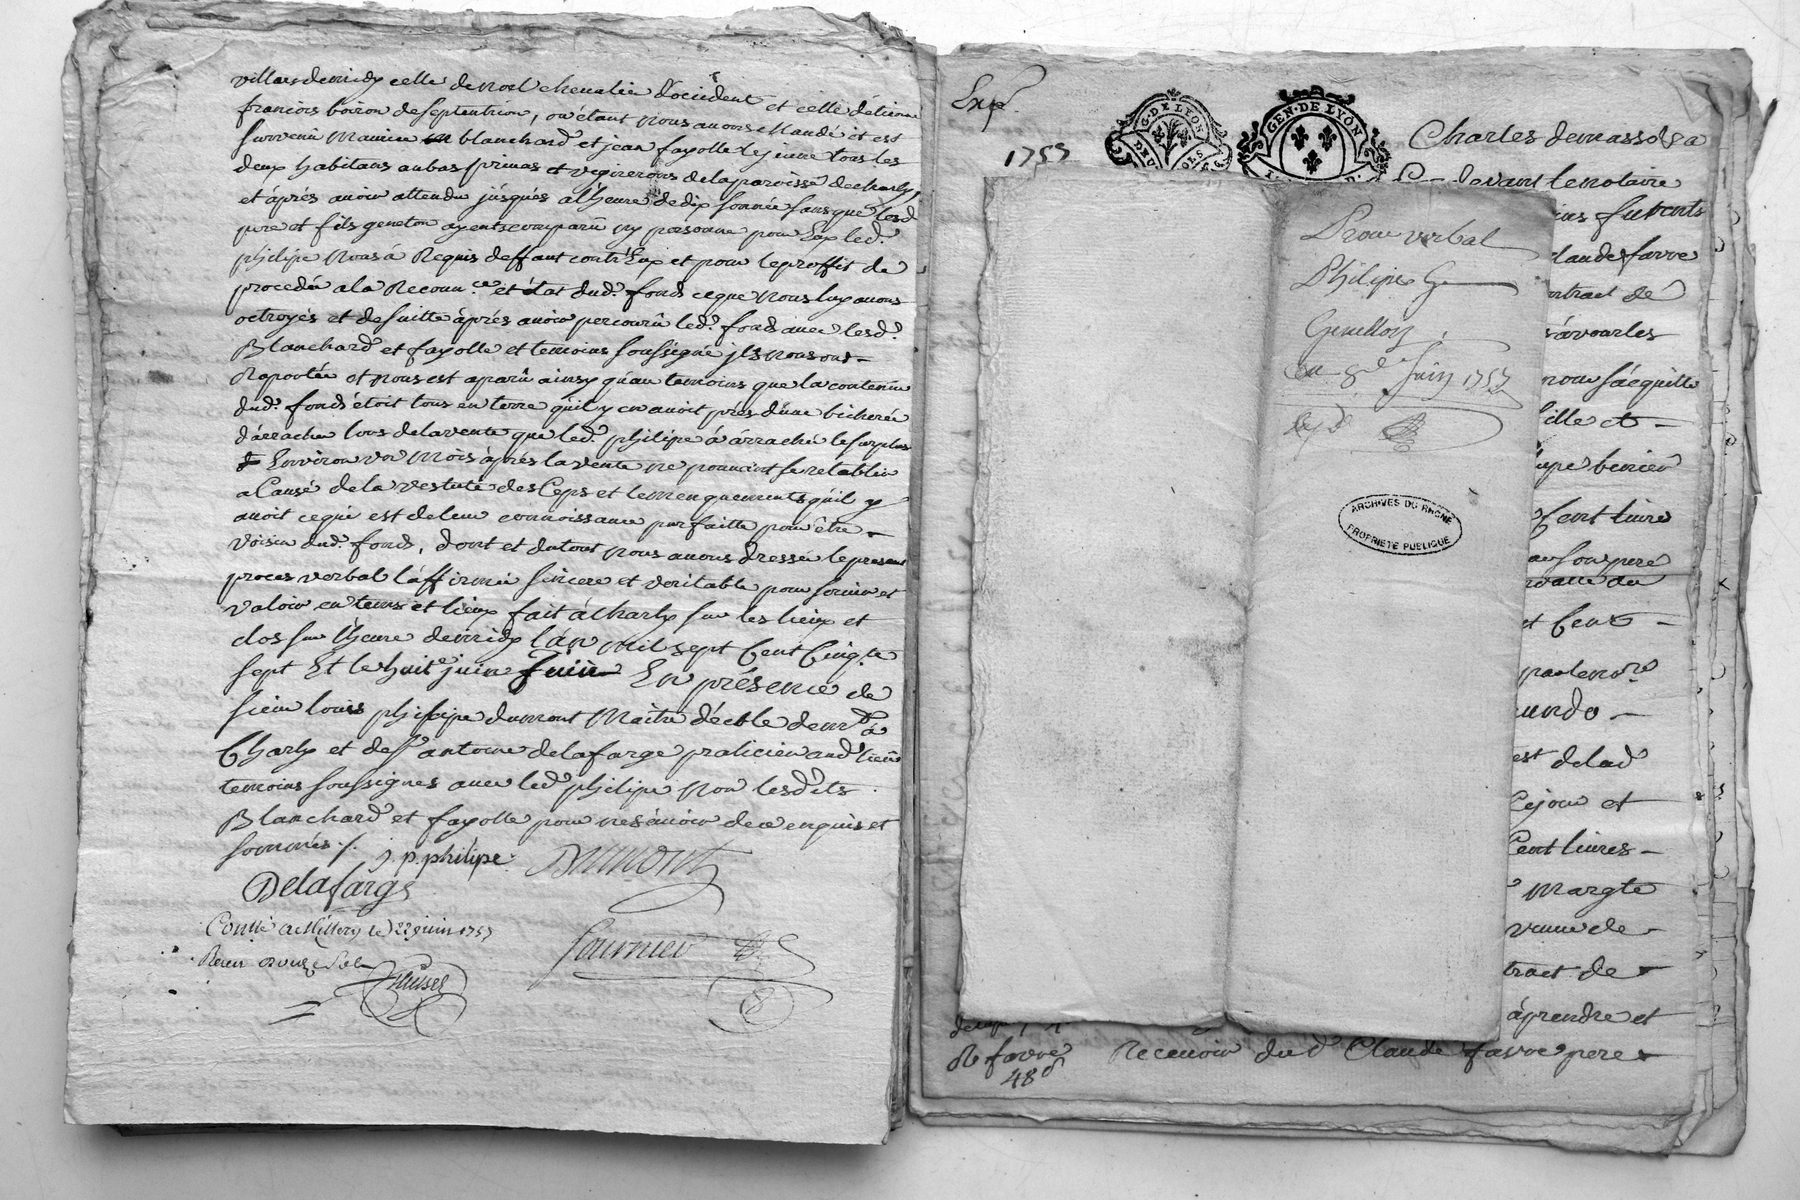 villars de midy celle de noel chevalier d'occident et celle d'étienne
francois boiron de septentrion, ou étant nous avons mandé et est
survenu maurice blanchard et jean fayolle le jeune tous les
deux habitans au bas privas et vignerons de la paroisse de charly,
et áprés avoir attendu jusques a l'heure de dix sonnée sans que lesd
pere et fils geneton ayent comparû ny personne pour Eux led.
philipe nous á Requis deffaut contr'Eux et pour le proffit de
proceder a la Reconn.ce et état dud. fonds ce que nous luy avons
octroyés et de suitte áprés avoir percourû led. fonds avec lesd.
Blanchard et fayolle et temoins soussignés jls nous ont
Raportés et nous est aparû ainsy qu'au temoins que la contenue
dud. fonds étoit tous en terre qu'il y en avoit prés d'une bicherée
d'arrachée lors de la vente que led. philipe á árraché le surplus
Environ un mois áprés la vente ne pouvant se retablir
a Cause de la vestuté des Ceps et le menquements qu'il y
avoit ce qui est de leur connoissance parfaitte pour être
voisin dud. fonds, dont et du tout nous avons dressé le present
proces verbal l'áffirmer sincere et veritable pour servir et
valoir en tems et lieux fait á Charly sur les lieux et
clos sur l'heure de midy l'án mil sept Cent Cinq.te
sept Et le huit juin En présence de
sieur louis philipe dumont Maître d'école dem.t á
Charly et de s.r antoine delafarge praticien aud. lieu
temoins soussignes avec led. philipe Non lesdits
Blanchard et fayolle pour ne sçavoir de ce enquis et
sommés ./. j. p. philipe Dumont
Delafarge
Conttlé a Millery le 22 juin 1757
Receu douze sols
fournier
Exp.
1757
G. DE LYON
DEUX SOLS
GEN. DE LYON
Charles demasso
devant le notaire
Claude favre
contract dé
sávoir les
nom jácquitte
fille et
Cent livre
au son pere
et Cent
par le no.re
est de lad
Ce jour et
Cent livres
Margte
veuve de
tract de
áprendre et
Recevoir du d. Claude favre pere
R favre
48 d
Proces verbal
Philipe C
Genetton
du 8e Juin 1757
Exp.d
ARCHIVES DU RHÔNE
PROPRIÉTÉ PUBLIQUE